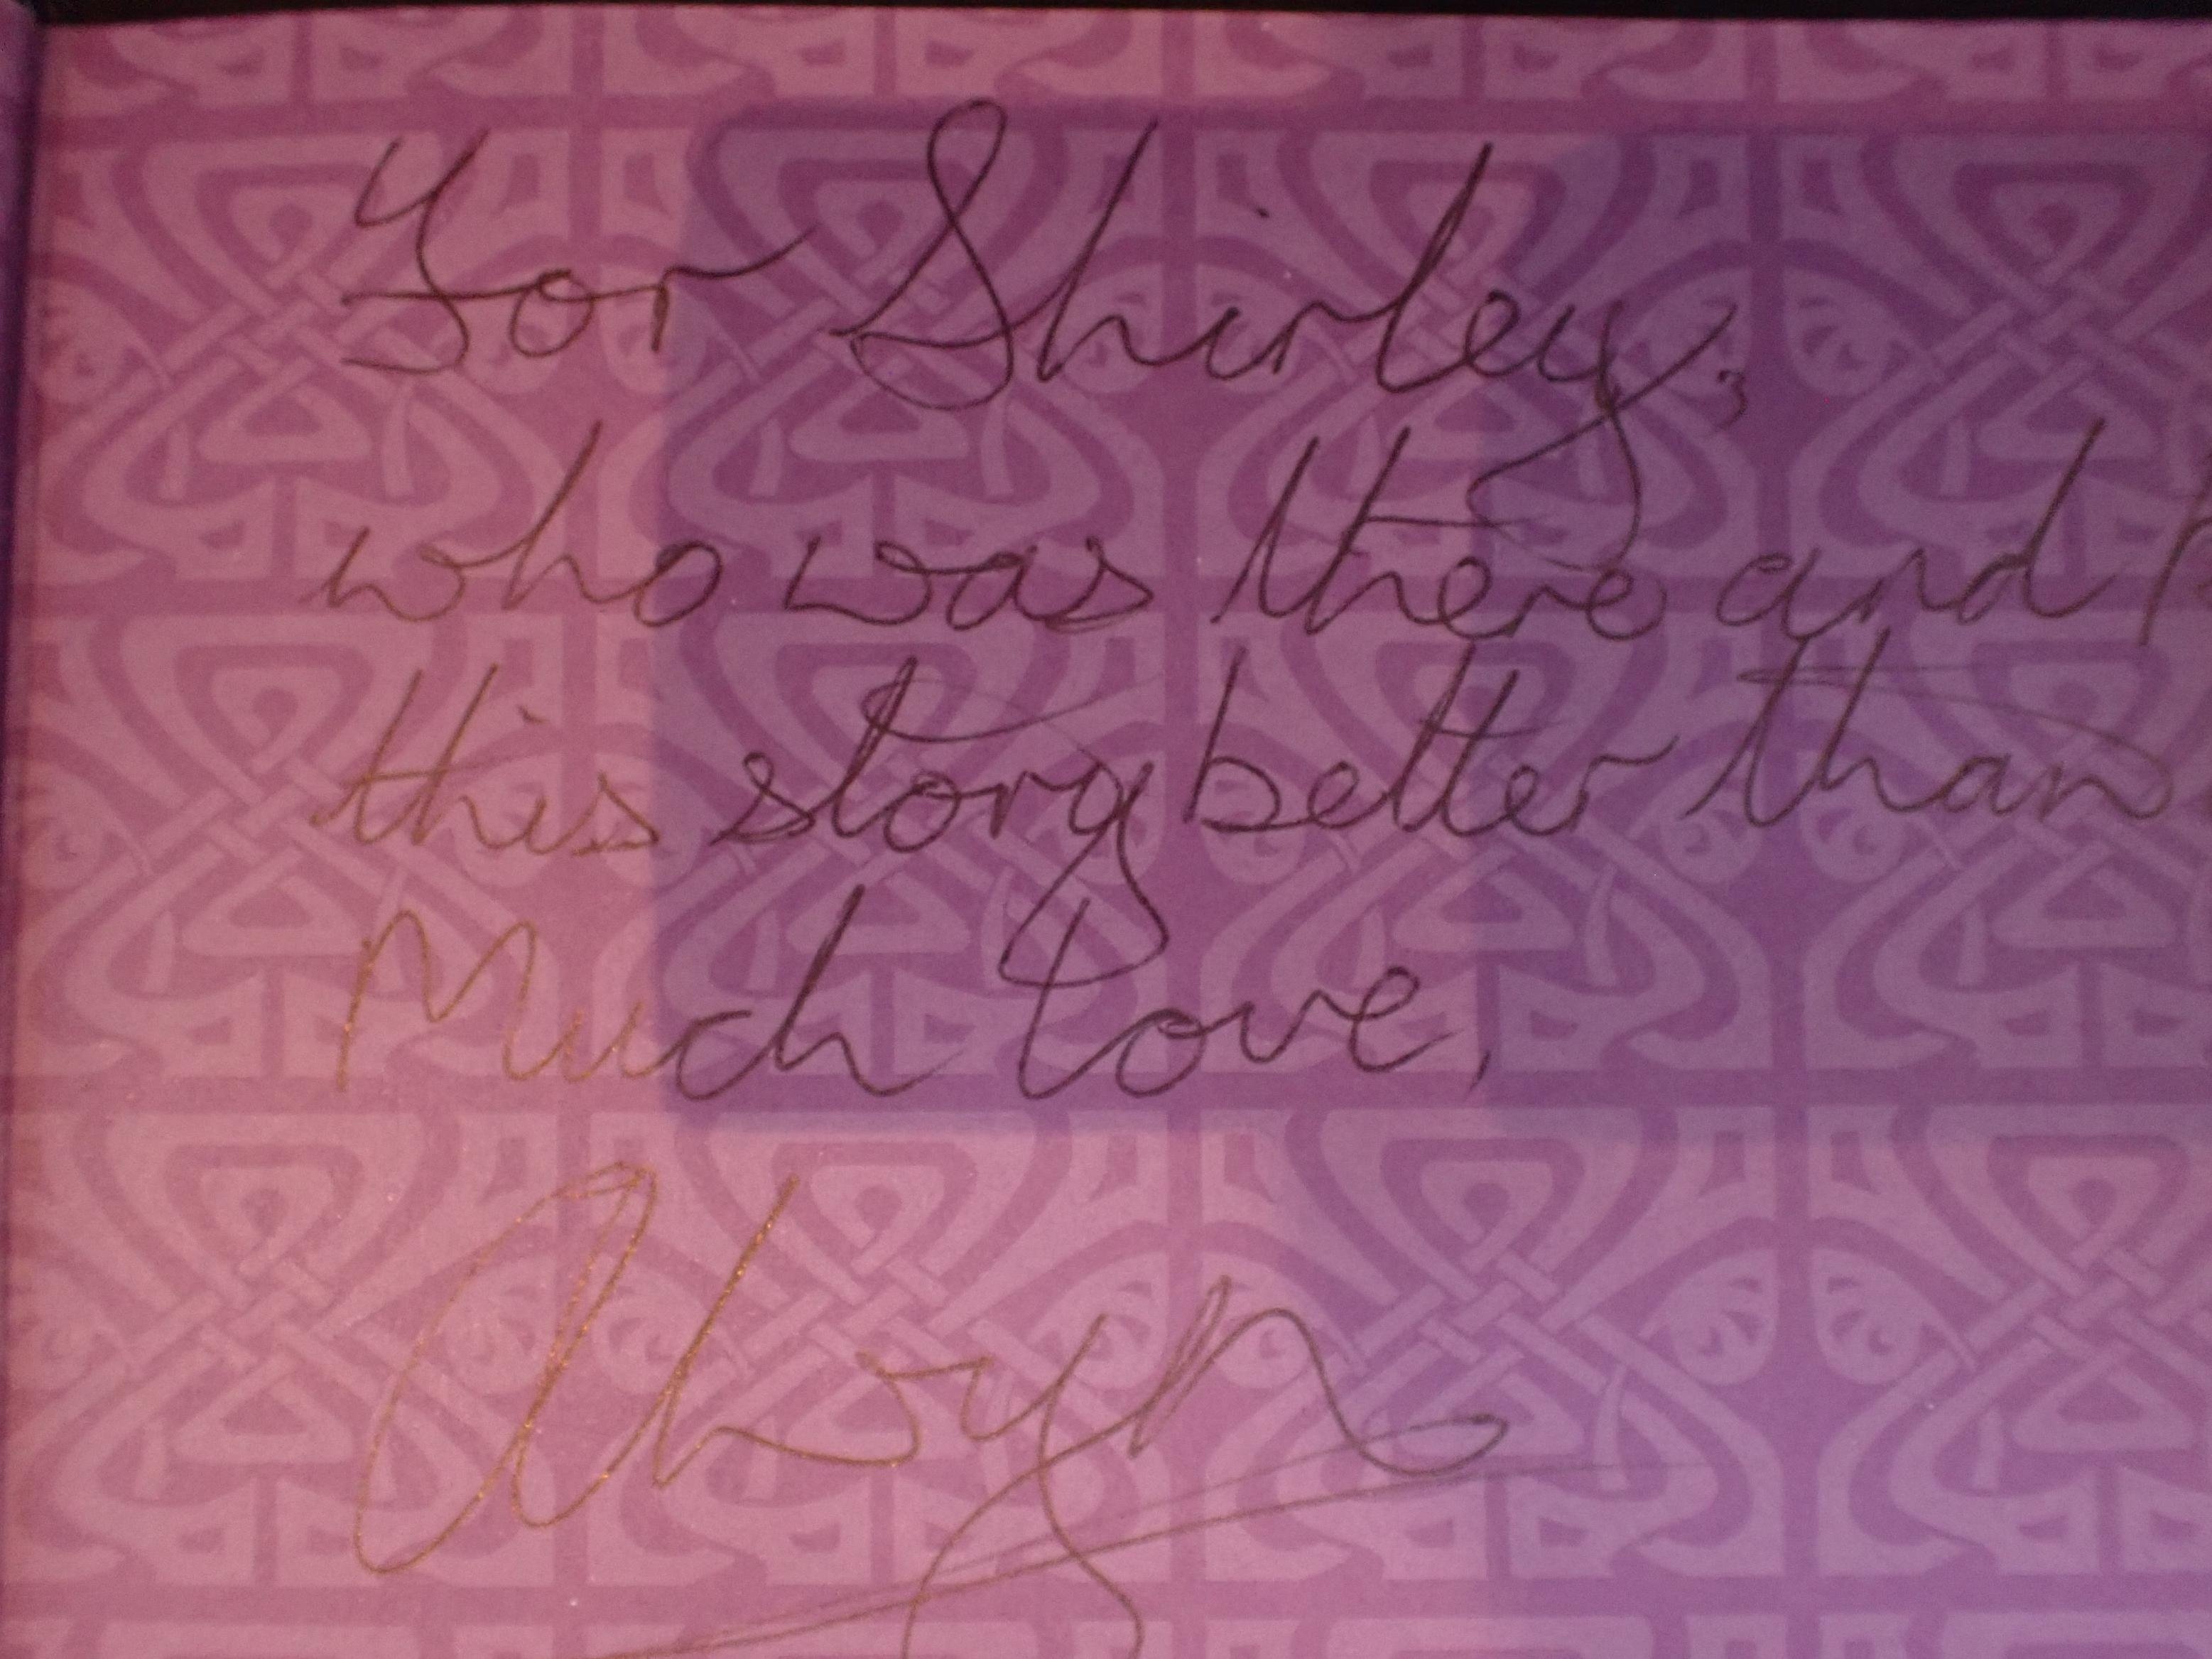 For Shirley,
who was there and
this story better than
Much love,
Alwyn